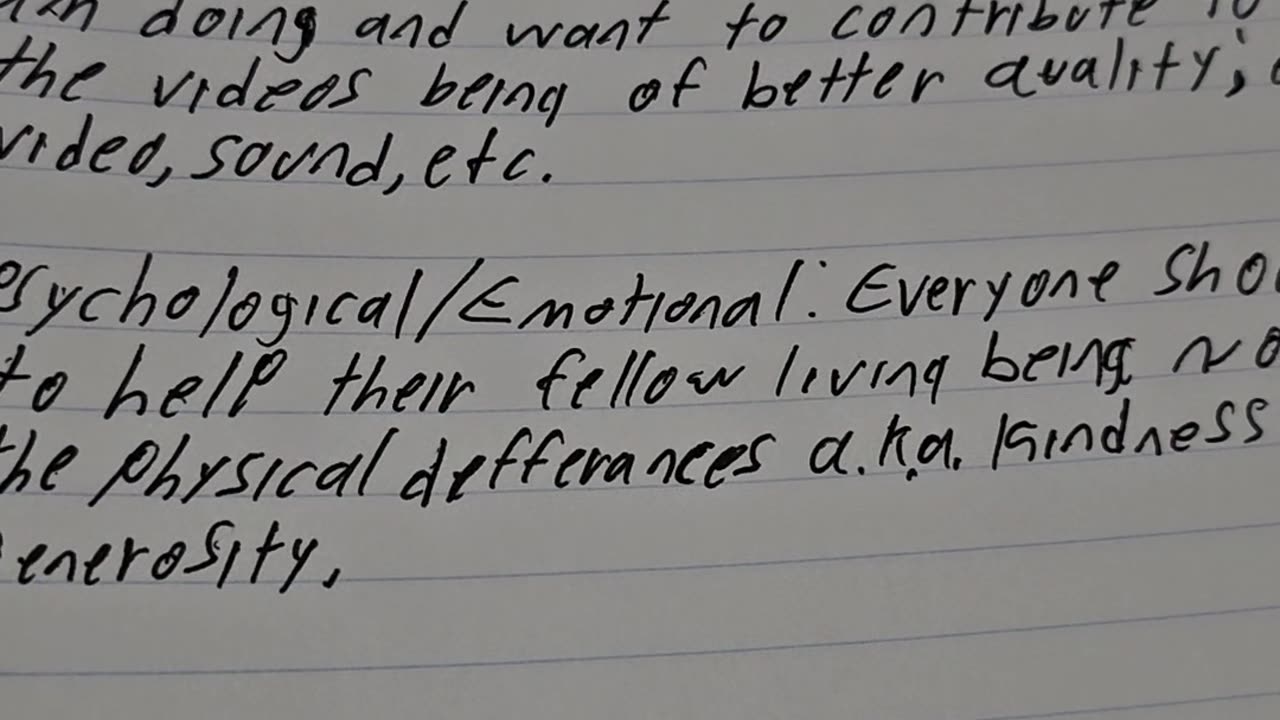 am doing and want to contribute to
the videos being of better quality;
video, sound, etc.
Psychological/Emotional: Everyone Sho
to help their fellow living being no
the physical defferances a.k.a. Kindness
enerosity.